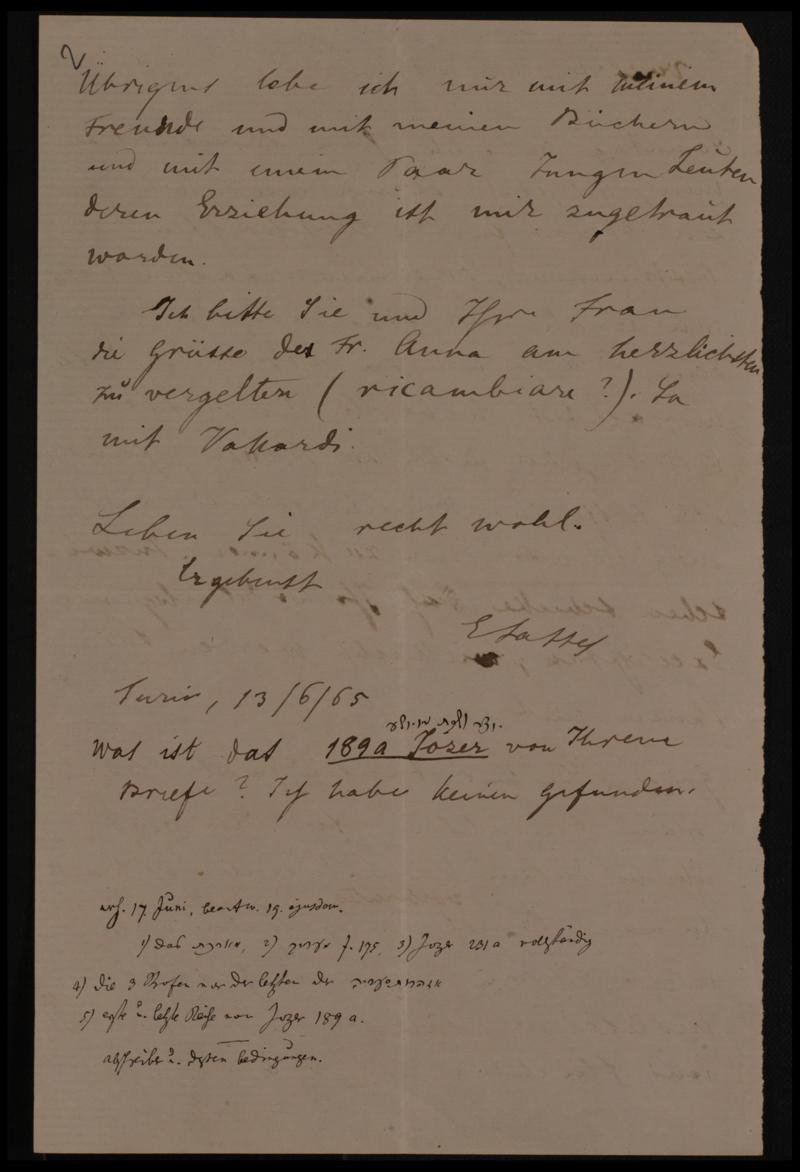 2
Übrigens lebe ich nur mit meinem
Freunde und mit meinen Büchern
und mit einem Paar Jungen Leuten
deren Erziehung ist mir zugetraut
worden.
Ich bitte Sie und Ihre Frau
die Grüsse der Fr. Anna am herzlichsten
zu vergelten (ricambiare?). So
mit
Leben Sie recht wohl.
Ergebenst
Turin, 13/6/65
Was ist das 189a Jozer von Ihrem
Briefe? Ich habe keinen gefunden.
17 Juni, beantw. 19.
1) das 2) f. 175, 3) Jozer 231a vollständig
4) die 3 Strofen vor der letzten der
5) erste u. letzte Reihe von Jozer 189a.
bedingungen.